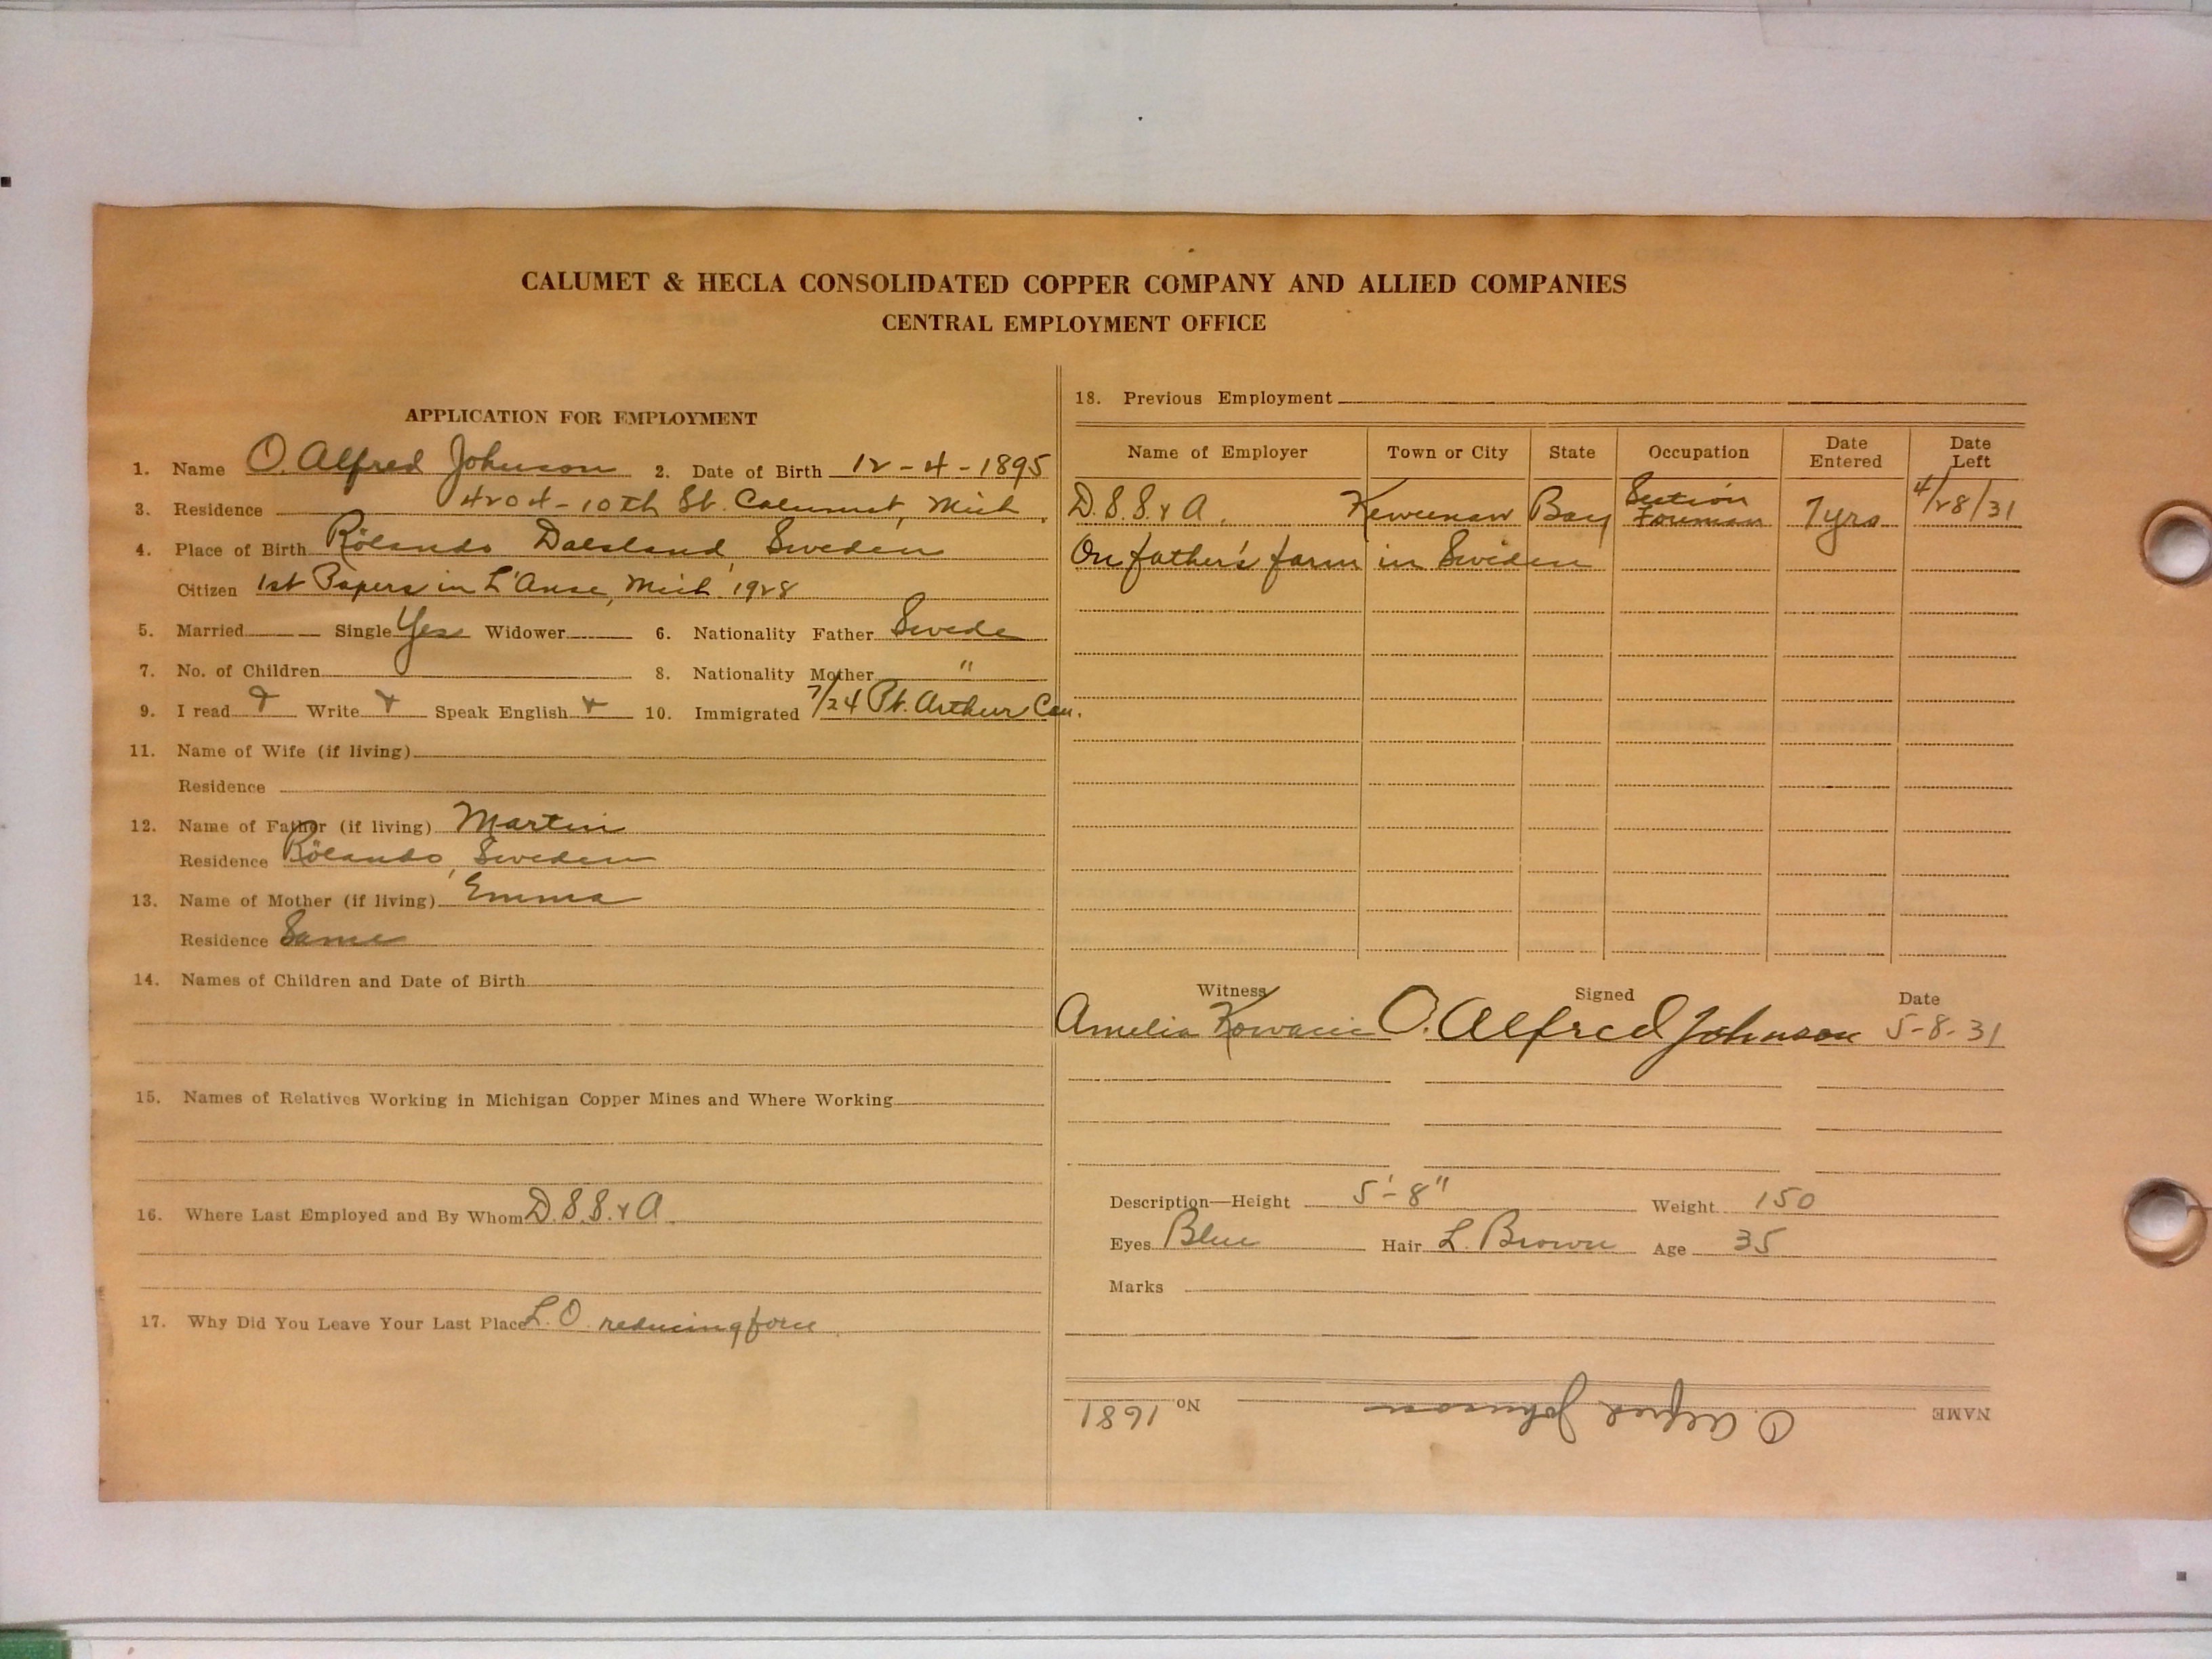 CALUMET & HECLA CONSOLIDATED COPPER COMPANY AND ALLIED COMPANIES
CENTRAL EMPLOYMENT OFFICE
APPLICATION FOR EMPLOYMENT
1. Name O. Alfred Johnson 2. Date of Birth 12-4-1895
3. Residence 4204-10th St. Calumet, Mich.
4. Place of Birth Rölando Dalsland, Sweden
Citizen 1st Papers in L'Anse, Mich. 1928
5. Married Single Yes Widower 6. Nationality Father Swede
7. No. of Children 8. Nationality Mother "
9. I read Write Speak English 10. Immigrated 7/24 Pt. Arthur Can.
11. Name of Wife (if living)
Residence
12. Name of Father (if living) Martin
Residence Rölando, Sweden
13. Name of Mother (if living) Emma
Residence Same
14. Names of Children and Date of Birth
15. Names of Relatives Working in Michigan Copper Mines and Where Working
16. Where Last Employed and By Whom D.S.S. & A.
17. Why Did You Leave Your Last Place L.O. reducing force
18. Previous Employment
Name of Employer Town or City State Occupation Date Entered Date Left
D.S.S. & A. Keweenaw Bay Section Foreman 7 yrs 4/28/31
On father's farm in Sweden
Witness Signed Date
Amelia O. Alfred Johnson 5-8-31
Description—Height 5'-8" Weight 150
Eyes Blue Hair L. Brown Age 35
Marks
NAME O. Alfred Johnson No. 1681